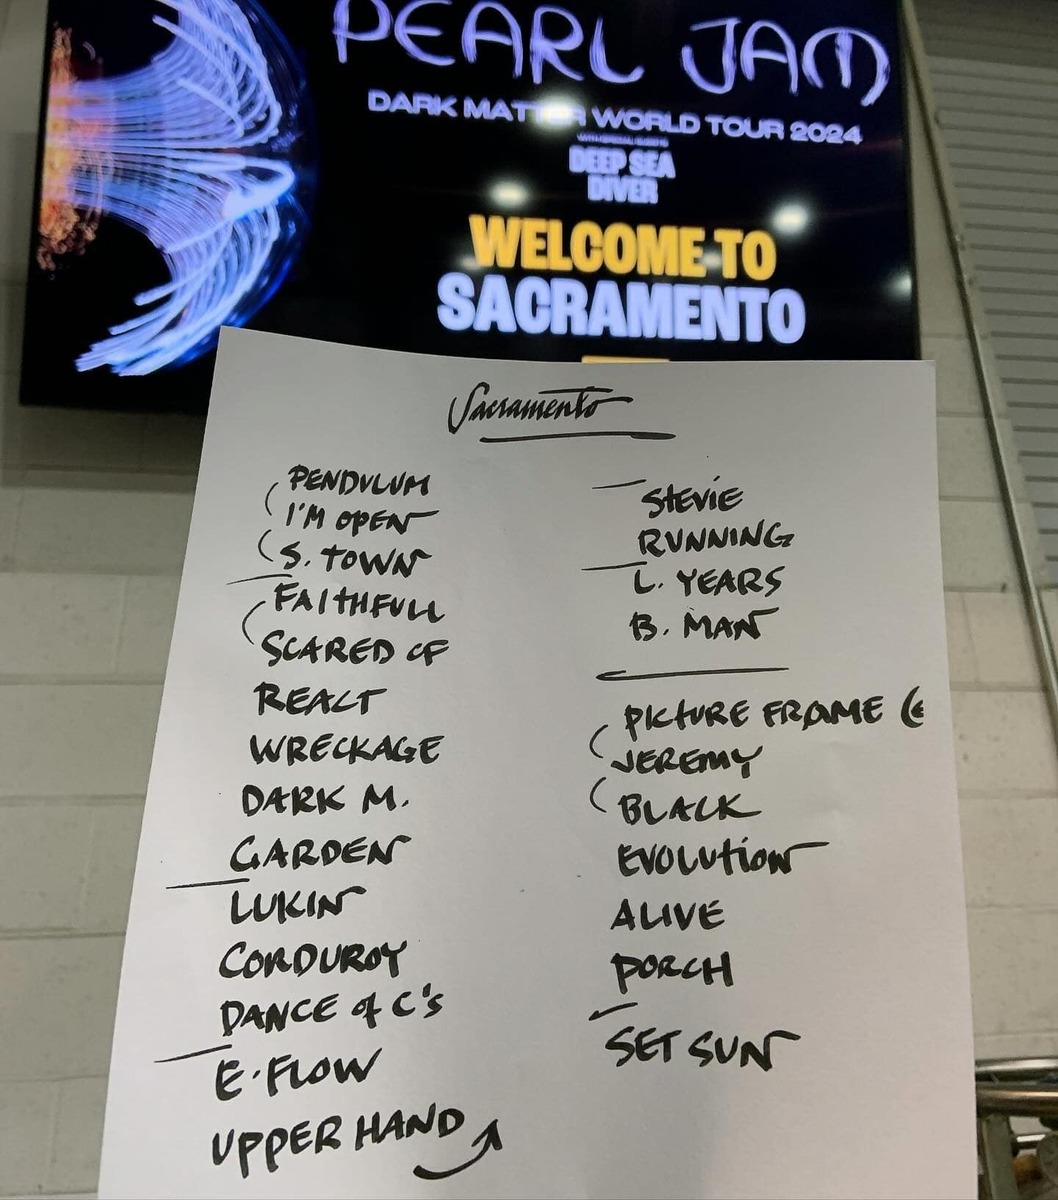 PEARL JAM
DARK MATTER WORLD TOUR 2024
DEEP SEA
DIVER
WELCOME TO
SACRAMENTO
Sacramento
PENDULUM
I'M OPEN
S. TOWN
FAITHFULL
SCARED OF
REACT
WRECKAGE
DARK M.
GARDEN
LUKIN
CORDUROY
DANCE of C's
E. FLOW
UPPER HAND
STEVIE
RUNNING
L. YEARS
B. MAN
PICTURE FRAME (E
JEREMY
BLACK
EVOLUTION
ALIVE
PORCH
SET SUN